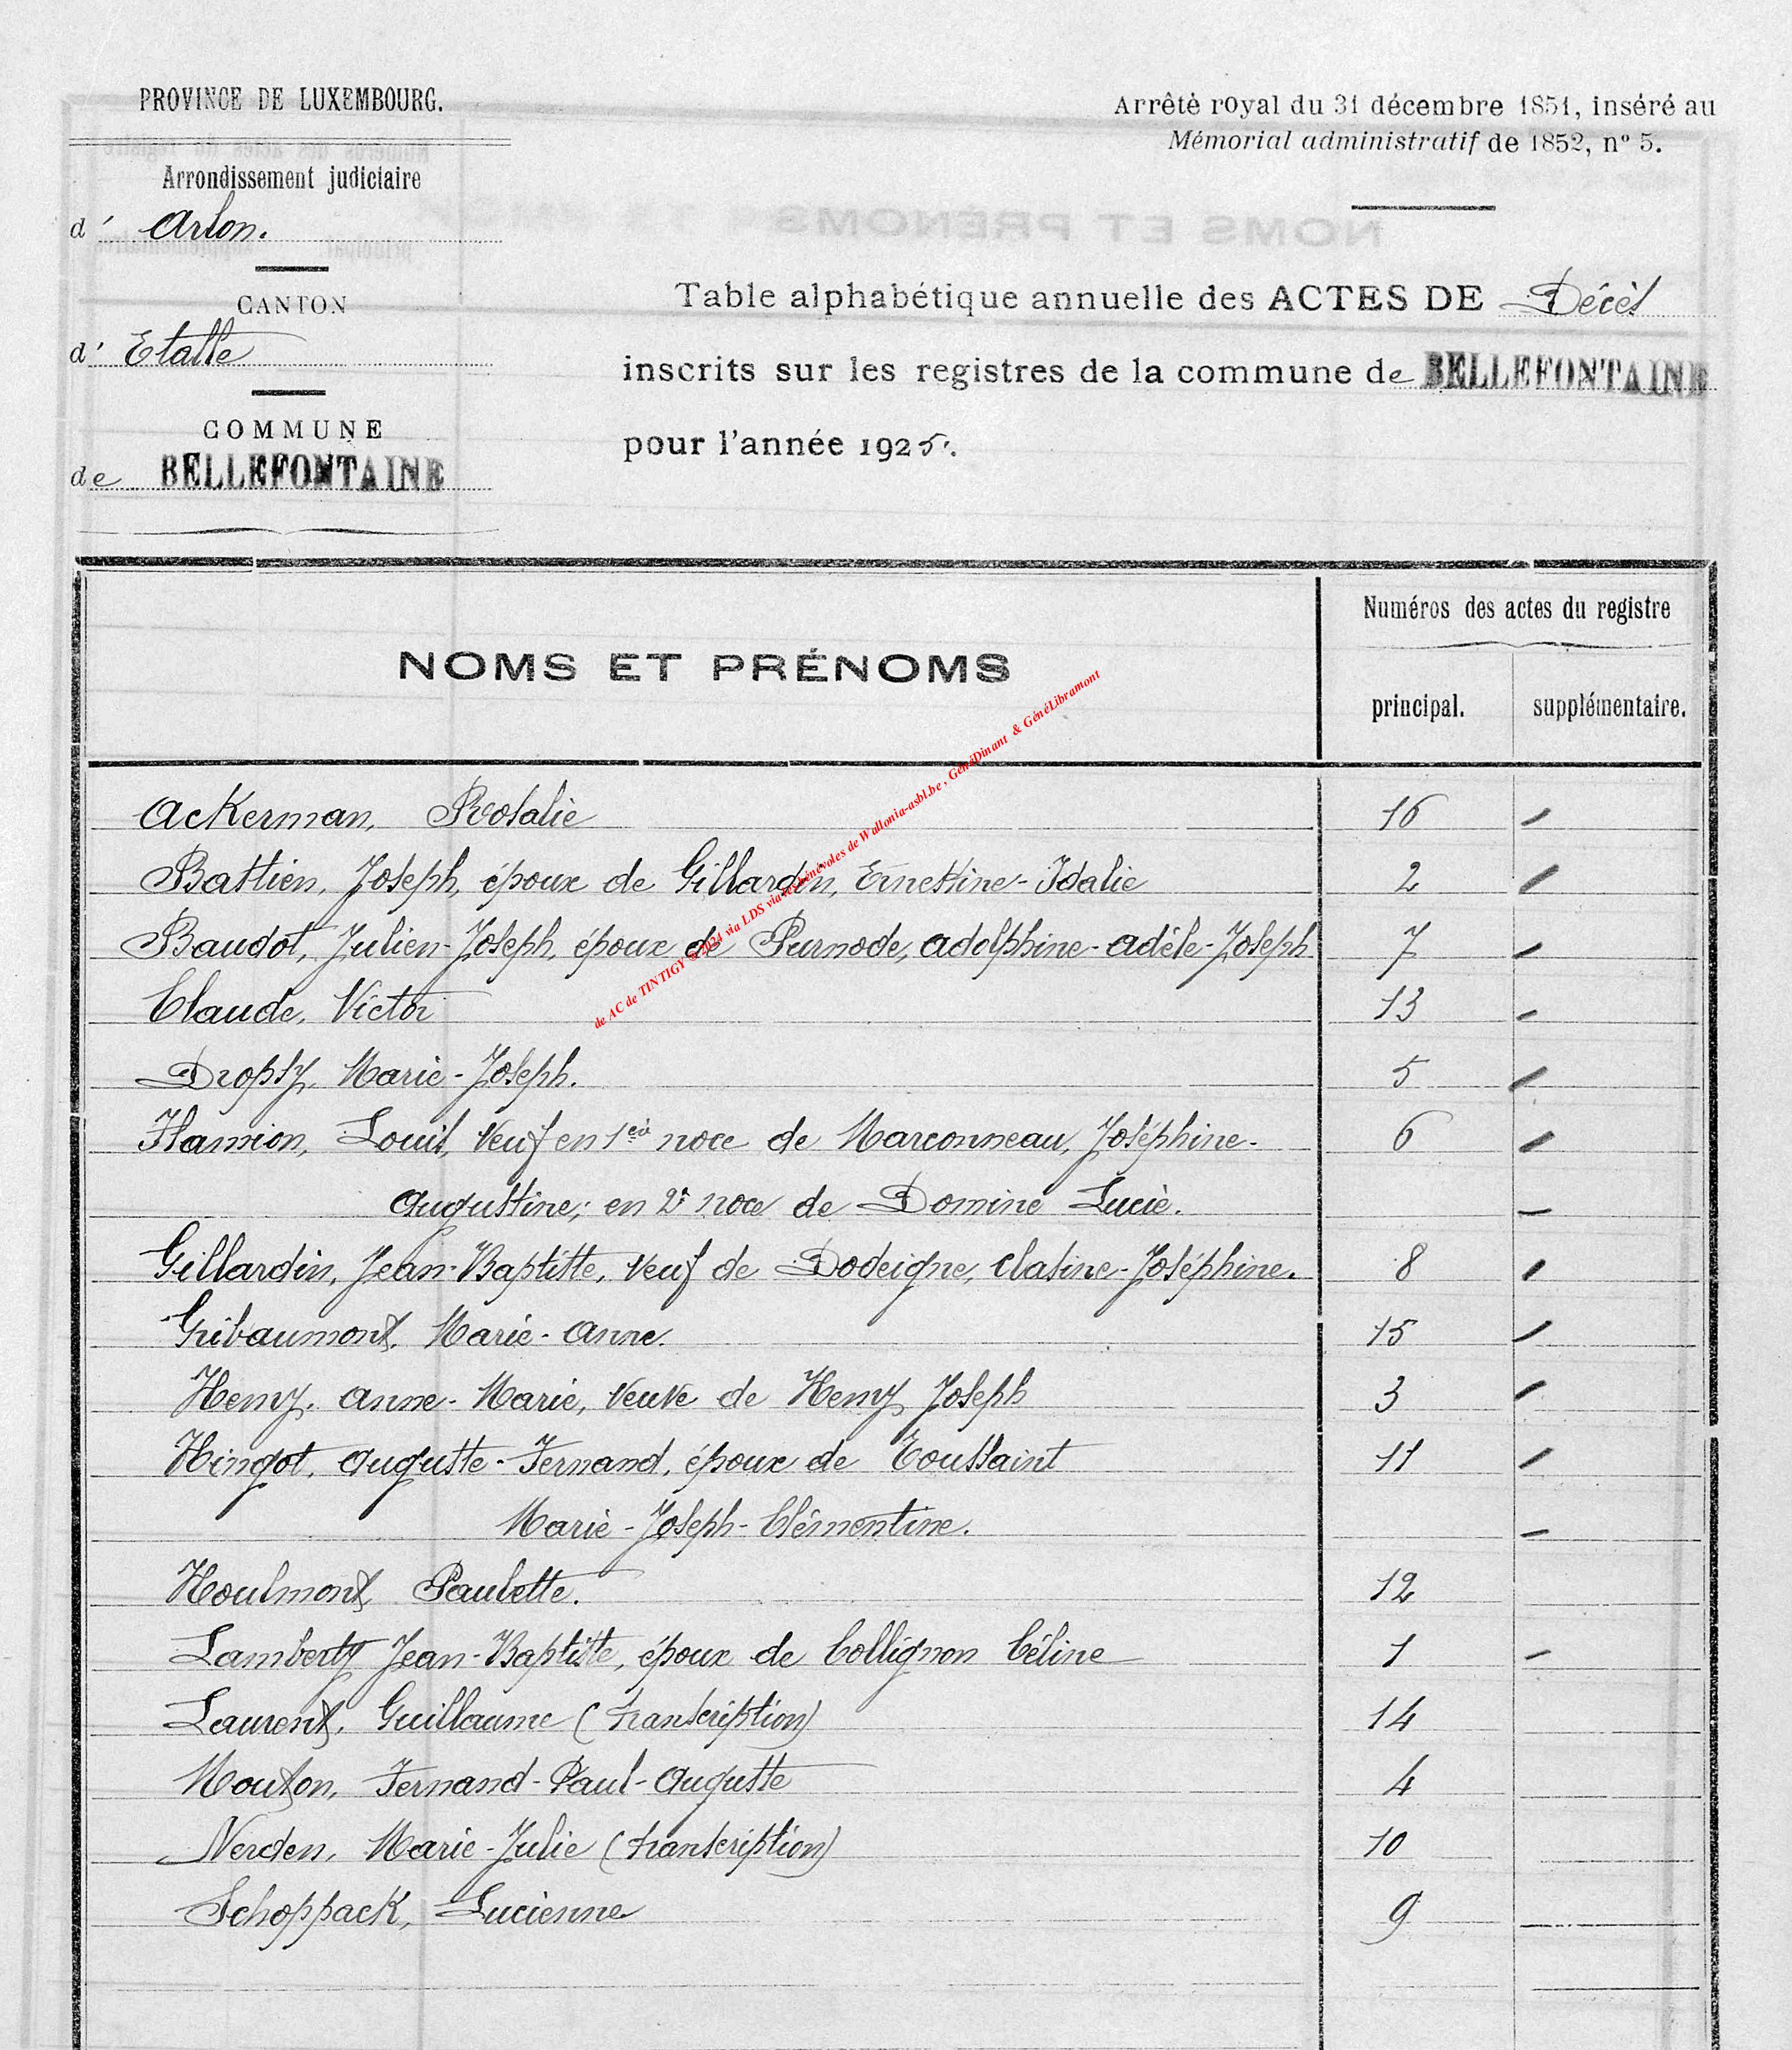 PROVINCE DE LUXEMBOURG.
Arrondissement judiciaire
d' Arlon.
CANTON
d' Etalle
COMMUNE
de BELLEFONTAINE
Arrêté royal du 31 décembre 1851, inséré au
Mémorial administratif de 1852, nº 5.
Table alphabétique annuelle des ACTES DE Décès
inscrits sur les registres de la commune de BELLEFONTAINE
pour l'année 1925.
NOMS ET PRÉNOMS
Numéros des actes du registre
principal. supplémentaire.
Ackerman, Rosalie 16
Bastien, Joseph, époux de Gillardin, Ernestine-Idalie 2
Baudot, Julien-Joseph, époux de Purnode, Adolphine-Adèle-Joseph 7
Claude, Victor 13
Dropsy, Marie-Joseph. 5
Flamion, Louis, veuf en 1es noce de Marconneau, Joséphine- 6
Augustine; en 2e noce de Domine Lucie.
Gillardin, Jean-Baptiste, veuf de Dodeigne, Clasine-Joséphine. 8
Gribaumont, Marie-Anne. 15
Henry, Anne-Marie, veuve de Henry Joseph 3
Hingot, Auguste-Fernand, époux de Toussaint 11
Marie-Joseph-Clémentine.
Houlmont Paulette. 12
Lamberty Jean-Baptiste, époux de Collignon Céline 1
Laurent, Guillaume (transcription) 14
Mouton, Fernand-Paul-Auguste 4
Nerden, Marie-Julie (transcription) 10
Schoppack, Lucienne 9
de AC de TINTIGY © 2024 via LDS via les bénévoles de Wallonia-asbl.be, GénéDinant & GénéLibramont